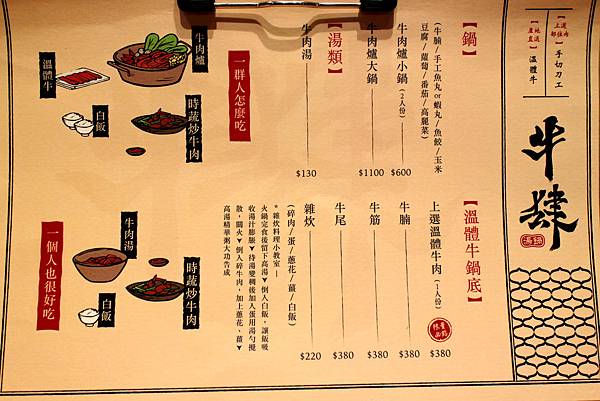 【上選部位肉】手切刀工
【在地產直送】溫體牛
牛肆
湯鍋
【鍋】
(牛腩/手工魚丸or蝦丸/魚餃/玉米
豆腐/蘿蔔/番茄/高麗菜)
牛肉爐小鍋(2人份) $600
牛肉爐大鍋 $1100
【湯類】
牛肉湯 $130
【溫體牛鍋底】
上選溫體牛肉(1人份) $380
牛腩 $380
牛筋 $380
牛尾 $380
雜炊 $220
(碎肉/蛋/蔥花/薑/白飯)
*雜炊料理小教室—
火鍋完食後留下高湯▼倒入白飯，讓飯吸
收湯汁膨脹▼待湯變稠後加入蛋用湯勺攪
散，關火▼倒入碎牛肉，加上蔥花、薑▼
高湯精華粥大功告成
一群人怎麼吃
牛肉爐
溫體牛
時蔬炒牛肉
白飯
一個人也很好吃
牛肉湯
時蔬炒牛肉
白飯